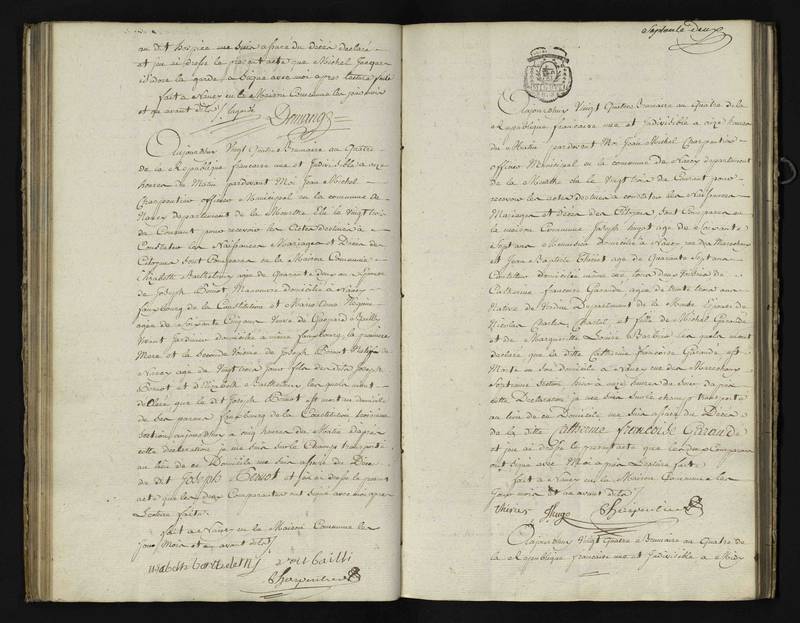 au dit hospice me suis assuré du Décès déclaré
et j'ai dressé le présent acte que Michel Jacque
Isidore la garde a Signé avec moi après lecture faite
fait à Nancy en la Maison Commune les jour mois
et an avant dits
Domange
Aujourdhuy Vingt Quatre Brumaire an Quatre
de la République française une et Indivisible a onze
heures du Matin pardevant Moi Jean Michel
Charpentier officier Municipal en la commune de
Nancy Departement de la Meurthe Elu le Vingt trois
du Courant pour recevoir les Actes destinés à
Constater les Naissances Mariages et Décès des
Citoyens Sont Comparus en la Maison Commune
Elizabeth Barthelemy agée de Quarante Deux ans Epouse
de Joseph Benoit Manoeuvre domicilié à Nancy
fauxbourg de la Constitution et Marie Anne
agée de Soixante Cinq ans Veuve de Gaspard
Vivant Jardinier domiciliée a même fauxbourg, la première
Mere et la Seconde Voisine de Joseph Benoit natif de
Nancy age de Vingt trois ans fils dudit Joseph
Benoit et d'Elizabeth Barthelemy lesquels m'ont
déclaré que le dit Joseph Benoit est mort au domicile
de ses parens fauxbourg de la Constitution troisième
Section aujourdhuy a huit heures du Matin d'après
cette declaration je me suis sur le Champ transporté
au lieu de ce Domicile me Suis assuré du Décès
du dit Joseph Benoit et j'ai dressé le présent
acte que les deux Comparutes ont signé avec moi après
Lecture faite.
fait a Nancy en la Maison Commune les
jour Mois et an avant dits
Charpentier
Septante deux
Aujourdhuy Vingt Quatre Brumaire an Quatre de la
République française une et Indivisible a onze heures
du Matin pardevant Moi Jean Michel Charpentier
officier Municipal en la commune de Nancy departement
de la Meurthe élu le Vingt trois du Courant pour
recevoir les actes destinés a constater les Naissances
Mariages et Décès des Citoyens, Sont Comparus en
la maison Commune Joseph hugo age de Soixante
Sept ans Menuisier Domicilié a Nancy rue des Marechaux
et Jean Baptiste Thirier age de Quarante Sept ans
domicilié même rue tous deux Voisins de
Catherine françoise Garaudé, agée de trente trois ans
Native de Verdun Departement de la Meuse Epouse de
Nicolas Charles Chastel, et fille de Michel Garaudé
et de Margueritte Louise Barbier les quels m'ont
déclaré que la ditte Catherine francoise Garaudé est
Morte en Son domicile a Nancy rue des Marechaux
Septieme Section hier a onze heures du Soir d'après
cette Declaration je me suis Sur le champ transporté
au lieu de ce Domicile me Suis assuré du Décès
de la ditte Catherine Françoise Garaudé
et j'ai dressé le présent acte que les deux Comparans
ont Signé avec Moi après Lecture faite
fait a Nancy en la Maison Commune les
Jour mois et an avant dits
thirier Hugo Charpentier
Aujourdhuy Vingt Quatre Brumaire an Quatre de
la République francaise une et Indivisible a Midy